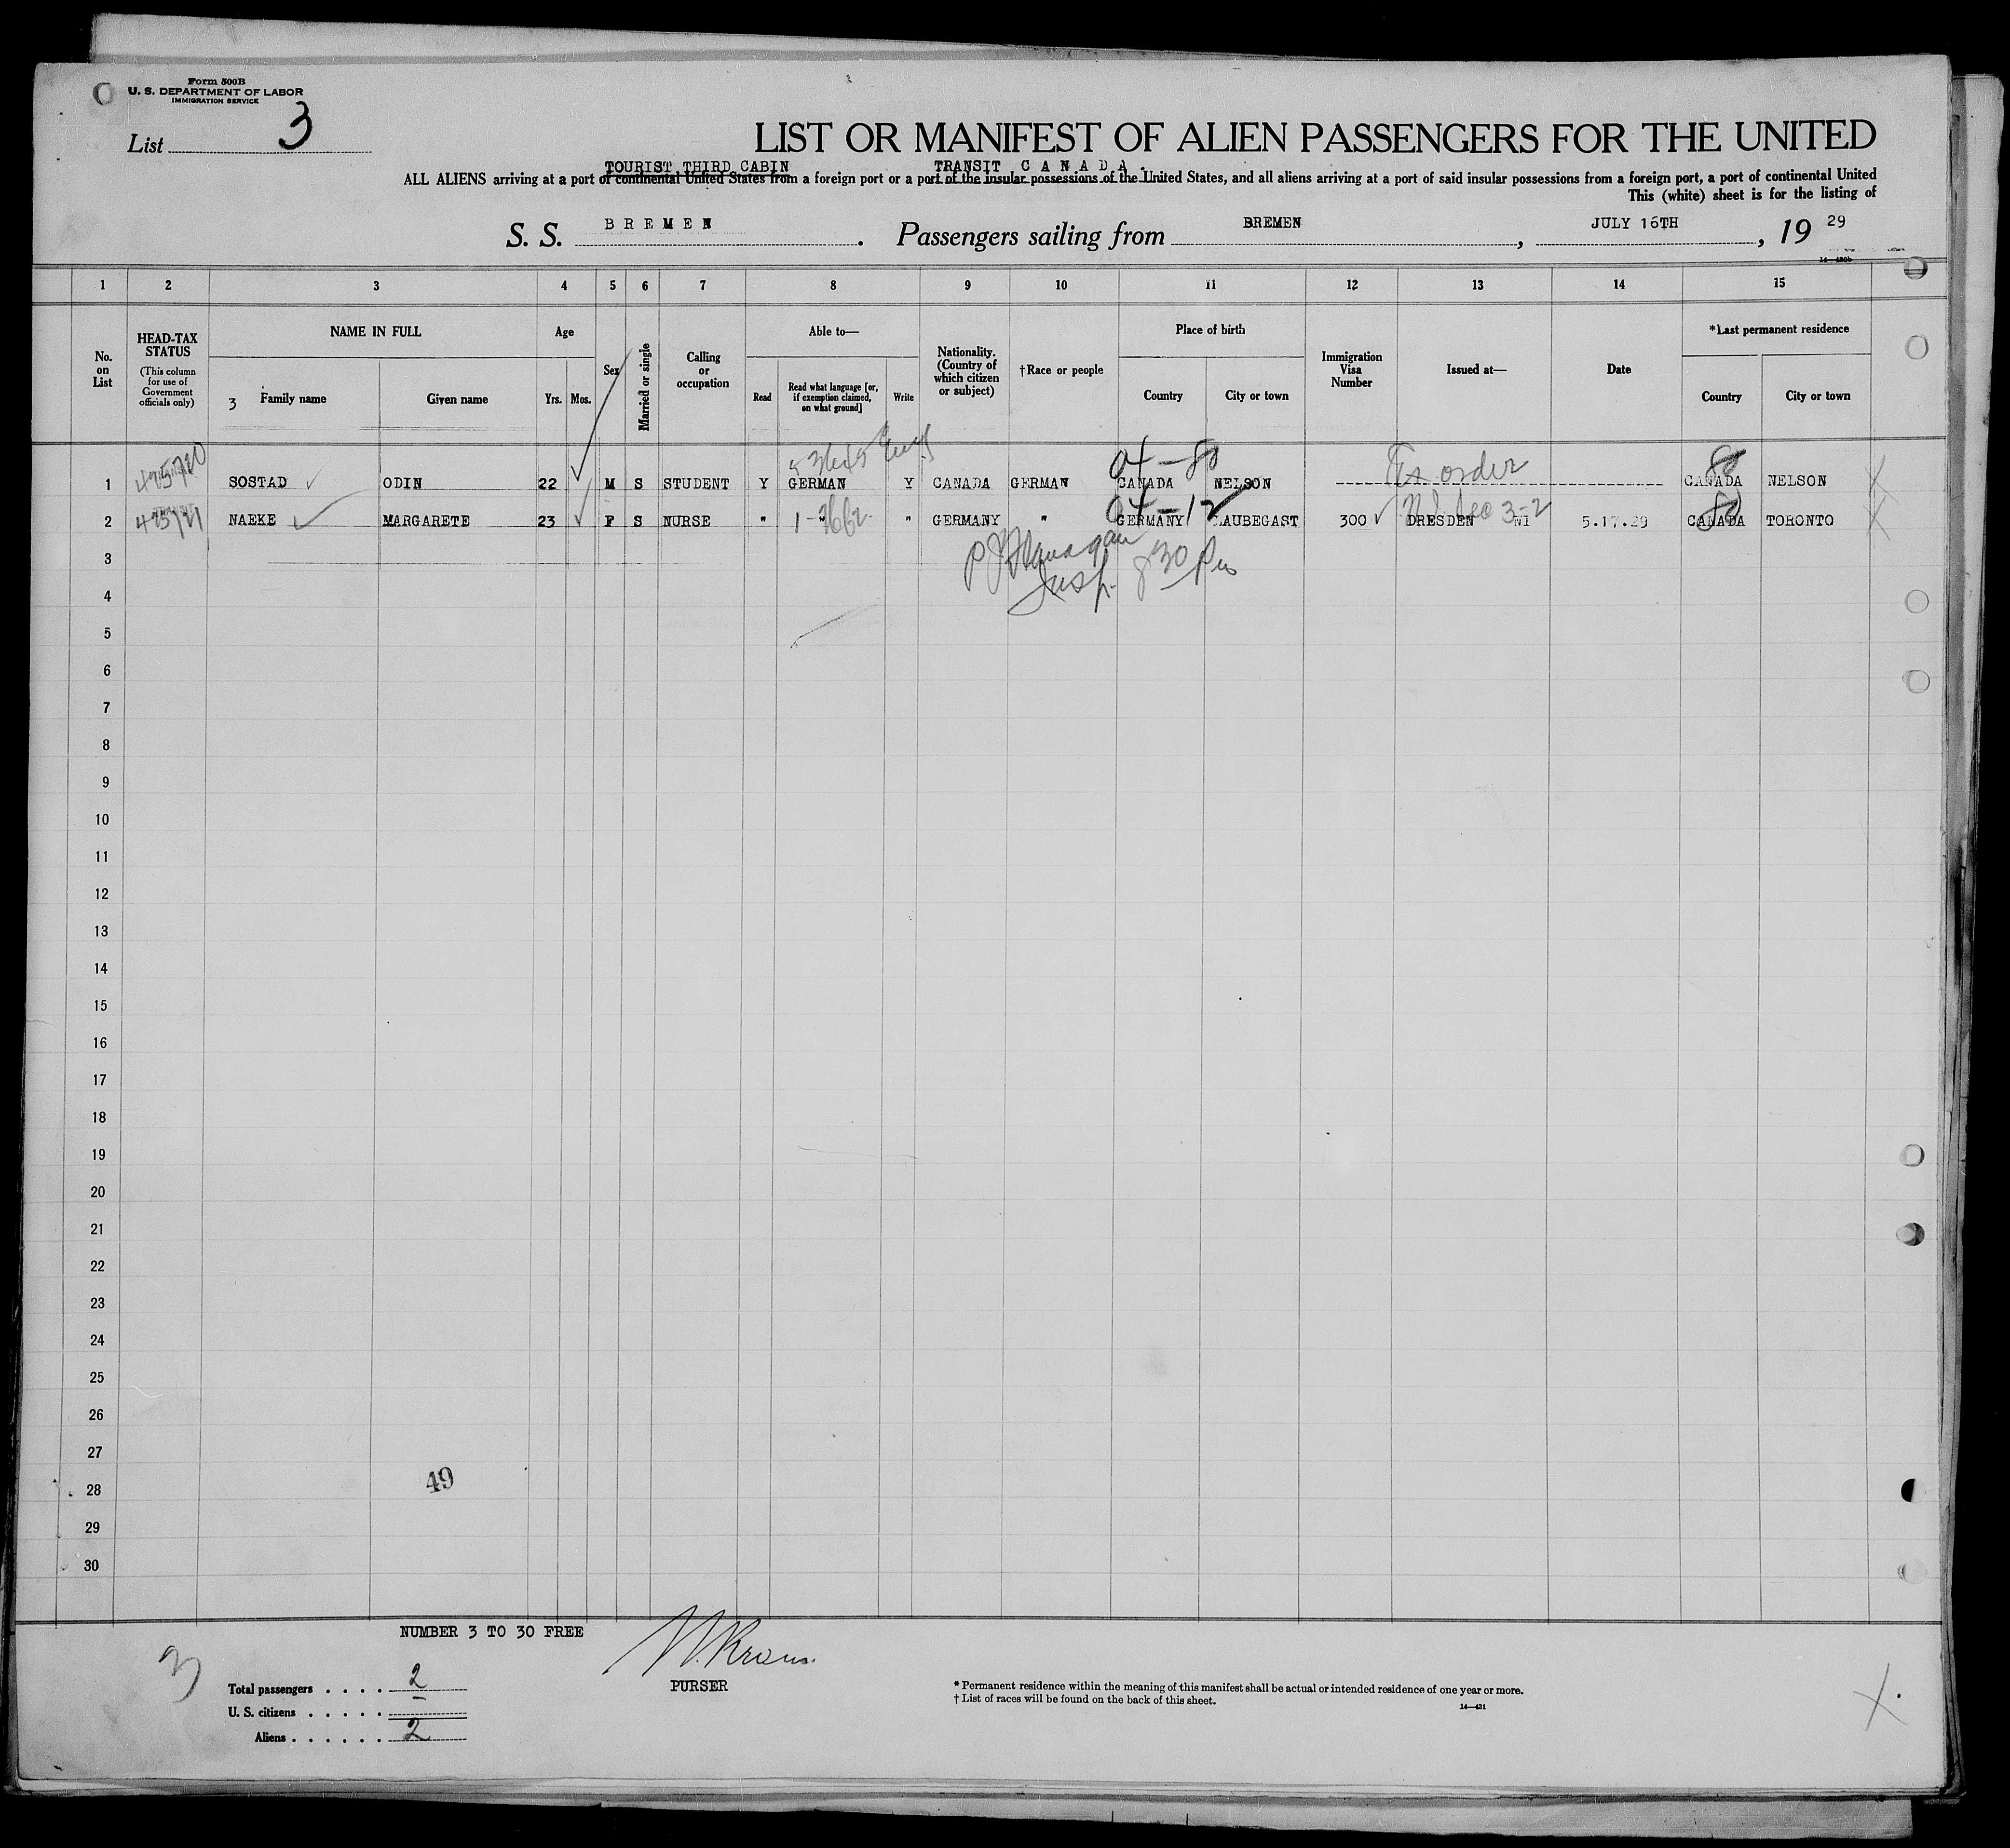 Form 500B
U. S. DEPARTMENT OF LABOR
IMMIGRATION SERVICE
List 3
LIST OR MANIFEST OF ALIEN PASSENGERS FOR THE UNITED
TOURIST THIRD CABIN TRANSIT CANADA.
ALL ALIENS arriving at a port of continental United States from a foreign port or a port of the insular possessions of the United States, and all aliens arriving at a port of said insular possessions from a foreign port, a port of continental United
This (white) sheet is for the listing of
S. S. BREMEN. Passengers sailing from BREMEN, JULY 16TH, 19 29
1 2 3 4 5 6 7 8 9 10 11 12 13 14 15
No. on List
HEAD-TAX STATUS (This column for use of Government officials only)
NAME IN FULL
3 Family name Given name
Age
Yrs. Mos.
Sex
Married or single
Calling or occupation
Able to—
Read Read what language [or, if exemption claimed, on what ground] Write
Nationality. (Country of which citizen or subject)
†Race or people
Place of birth
Country City or town
Immigration Visa Number
Issued at—
Date
*Last permanent residence
Country City or town
04-80
1 SOSTAD ODIN 22 M S STUDENT Y GERMAN Y CANADA GERMAN CANADA NELSON CANADA NELSON
04-12
2 NAEKE MARGARETE 23 F S NURSE " " " GERMANY " GERMANY LAUBEGAST 300 DRESDEN 5.17.29 CANADA TORONTO
3
4
5
6
7
8
9
10
11
12
13
14
15
16
17
18
19
20
21
22
23
24
25
26
27
28
29
30
49
NUMBER 3 TO 30 FREE
3
PURSER
Total passengers . . . . 2
U. S. citizens . . . . .
Aliens . . . . . . 2
* Permanent residence within the meaning of this manifest shall be actual or intended residence of one year or more.
† List of races will be found on the back of this sheet.
14—431